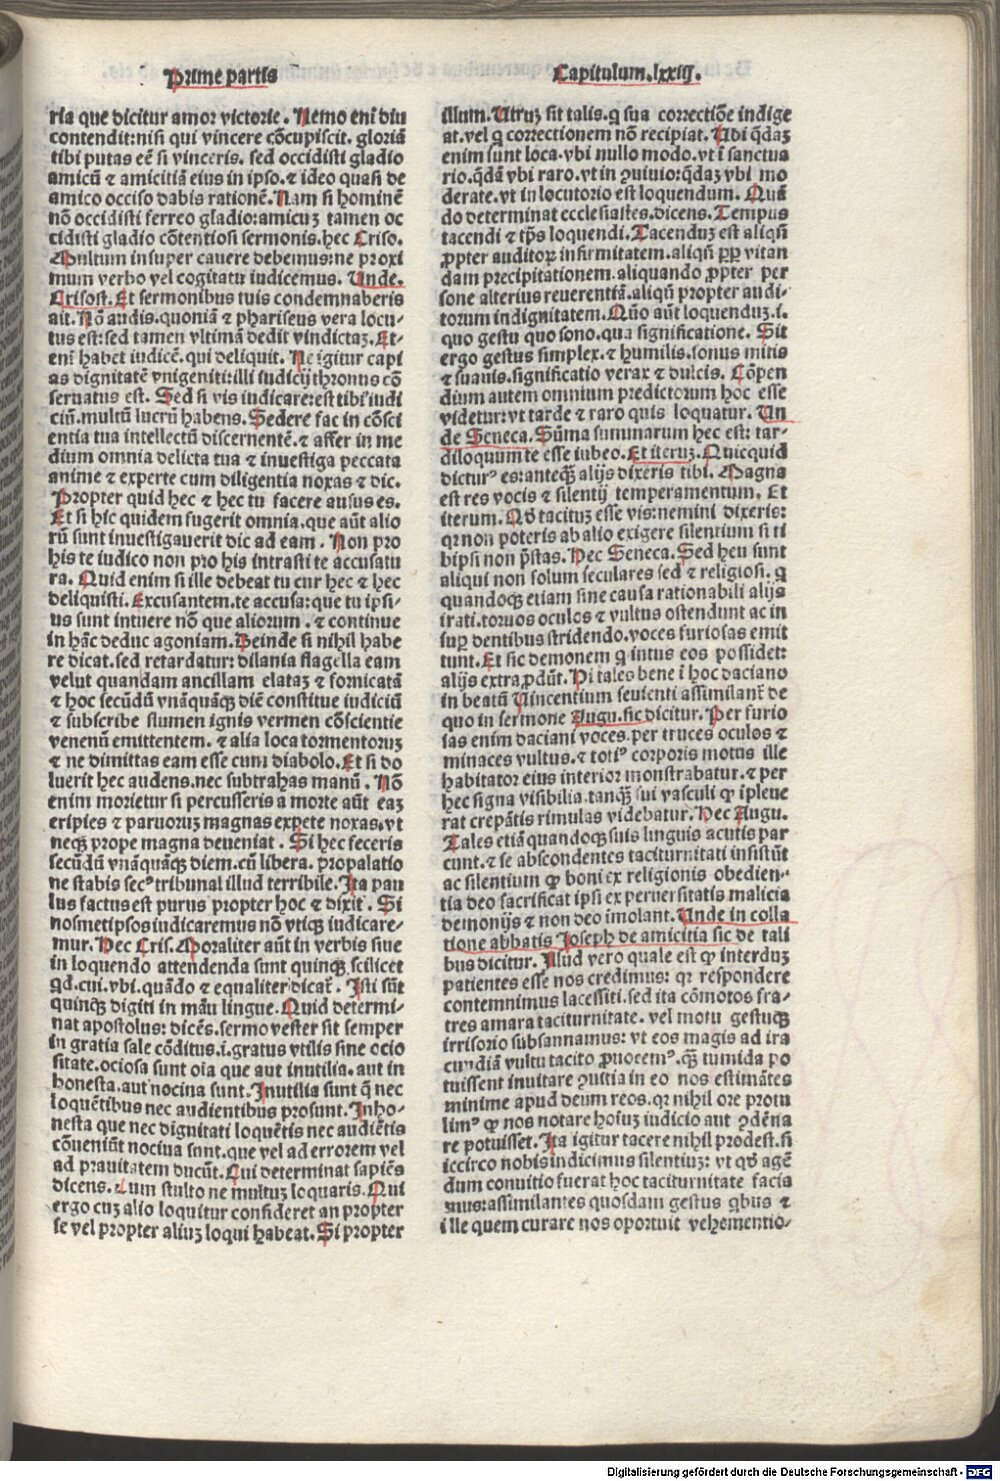 Prime partis
Capitulum.lxxiij.
ria que dicitur amor victorie. Nemo enī diu
contendit:nisi qui vincere cōcupiscit. gloriā
tibi putas eē si vinceris. sed occidisti gladio
amicū ⁊ amicitiā eius in ipso.⁊ ideo quasi de
amico occiso dabis rationē. Nam si hominē
nō occidisti ferreo gladio:amicuz tamen oc
cidisti gladio cōtentiosi sermonis.hec Criso.
Multum insuper cauere debemus:ne proxi
mum verbo vel cogitatu iudicemus. Unde.
Crisost. Et sermonibus tuis condemnaberis
ait. Nō audis.quoniā ⁊ phariseus vera locu-
tus est:sed tamen vltimā dedit vindictaz. Et-
enī habet iudicē.qui deliquit. Ne igitur capi
as dignitatē vnigeniti:illi iudicij thronus cō
seruatus est. Sed si vis iudicare:est tibi iudi
ciū.multū lucrū habens. Sedere fac in cōsci
entia tua intellectū discernentē.⁊ affer in me
dium omnia delicta tua ⁊ inuestiga peccata
anime ⁊ experte cum diligentia noxas ⁊ dic.
Propter quid hec ⁊ hec tu facere ausus es.
Et si hic quidem fugerit omnia.que aūt alio
rū sunt inuestigauerit dic ad eam. Non pro
his te iudico non pro his intrasti te accusatu
ra. Quid enim si ille debeat tu cur hec ⁊ hec
deliquisti. Excusantem.te accusa:que tu ipsi-
us sunt intuere nō que aliorum.⁊ continue
in hāc deduc agoniam.Deinde si nihil habe
re dicat.sed retardatur: dilania flagella eam
velut quandam ancillam elataz ⁊ fornicatā
⁊ hoc secūdū vnāquāqꝫ diē constitue iudiciū
⁊ subscribe flumen ignis vermen cōscientie
venenū emittentem.⁊ alia loca tormentoruz
⁊ ne dimittas eam esse cum diabolo. Et si do
luerit hec audens.nec subtrahas manū. Nō
enim morietur si percusseris a morte aūt eaz
eripies ⁊ paruoruz magnas expete noxas.vt
neqꝫ prope magna deueniat. Si hec feceris
secūdū vnāquāqꝫ diem.cū libera. propalatio
ne stabis secꝰ tribunal illud terribile. Ita pau
lus factus est purus propter hoc ⁊ dixit. Si
nosmetipsos iudicaremus nō vtiqꝫ iudicare-
mur. Hec Cris. Moraliter aūt in verbis siue
in loquendo attendenda sunt quinqꝫ.scilicet
qd.cui.vbi.quādo ⁊ equaliter dicat. Isti sūt
quinqꝫ digiti in māu lingue. Quid determi-
nat apostolus: dicēs.sermo vester sit semper
in gratia sale cōditus.i.gratus vtilis sine ocio
sitate.ociosa sunt oīa que aut inutilia.aut in
honesta.aut nociua sunt.Inutilia sunt q̄ nec
loquētibus nec audientibus prosunt.Inho-
nesta que nec dignitati loquētis nec audiētis
cōueniūt nociua sunt.que vel ad errorem vel
ad prauitatem ducūt. Cui determinat sapiēs
dicens. Cum stulto ne multuz loquaris. Qui
ergo cuz alio loquitur consideret an propter
se vel propter aliuz loqui habeat. Si propter
illum. Utruz sit talis.q̄ sua correctiōe indige
at.vel q̄ correctionem nō recipiat. Ubi q̄daz
enim sunt loca.vbi nullo modo.vt ī sanctua
rio.q̄dā vbi raro.vt in ꝯuiuio:q̄daz vbi mo
derate.vt in locutorio est loquendum. Quā
do determinat ecclesiastes.dicens. Tempus
tacendi ⁊ tp̄s loquendi. Tacenduz est aliqn̄
ꝓpter auditoꝝ infirmitatem.aliqn̄ ꝓpꝑ vitan
dam precipitationem.aliquando ꝓpter per
sone alterius reuerentiā.aliqn̄ propter audi-
torum indignitatem. Quō aūt loquenduz.i.
quo gestu quo sono.qua significatione. Sit
ergo gestus simplex.⁊ humilis.sonus mitis
⁊ suauis.significatio verax ⁊ dulcis. Cōpen
dium autem omnium predictorum hoc esse
videtur:vt tarde ⁊ raro quis loquatur. Un
de Seneca. Sūma summarum hec est: tar-
diloquum te esse iubeo. Et iteruz. Quicquid
dicturꝰ es:anteqꝫ alijs dixeris tibi. Magna
est res vocis ⁊ silentij temperamentum. Et
iterum. Qd̄ tacituz esse vis:nemini dixeris:
qꝛ non poteris ab alio exigere silentium si ti
bipsi non p̄stas. Hec Seneca. Sed heu sunt
aliqui non solum seculares sed ⁊ religiosi. q̄
quandoqꝫ etiam sine causa rationabili alijs
irati.toruos oculos ⁊ vultus ostendunt ac in
suꝑ dentibus stridendo.voces furiosas emit
tunt. Et sic demonem q̄ intus eos possidet:
alijs extra ꝓdūt. Hi tales bene ī hoc daciano
in beatū Uincentium seuienti assimilant̄ de
quo in sermone Augu.sic dicitur. Per furio
sas enim daciani voces.per truces oculos ⁊
minaces vultus.⁊ totiꝰ corporis motus ille
habitator eius interior monstrabatur.⁊ per
hec signa visibilia.tanqꝫ sui vasculi qd̄ ipleue
rat crepātis rimulas videbatur. Hec Augu.
Tales etiā quandoqꝫ suis linguis acutis par
cunt.⁊ se abscondentes taciturnitati insistūt
ac silentium qd̄ boni ex religionis obedien-
tia deo sacrificat ipsi ex peruersitatis malicia
demonijs ⁊ non deo imolant. Unde in colla
tione abbatis Joseph de amicitia sic de tali
bus dicitur. Illud vero quale est qd̄ interduz
patientes esse nos credimus: qꝛ respondere
contemnimus lacessiti.sed ita cōmotos fra-
tres amara taciturnitate. vel motu gestuqꝫ
irrisorio subsannamus: vt eos magis ad ira
cundiā vultu tacito ꝓuocemꝰ.qꝫ tumida po
tuissent inuitare ꝯuitia in eo nos estimātes
minime apud deum reos.qꝛ nihil ore protu
limꝰ qd̄ nos notare hoīuz iudicio aut ꝯdēna
re potuisset. Ita igitur tacere nihil prodest.si
iccirco nobis indicimus silentiuz: vt qd̄ agē
dum conuitio fuerat hoc taciturnitate facia
mus:assimilantes quosdam gestus qbus ⁊
ille quem curare nos oportuit vehementio-
Digitalisierung gefördert durch die Deutsche Forschungsgemeinschaft - DFG